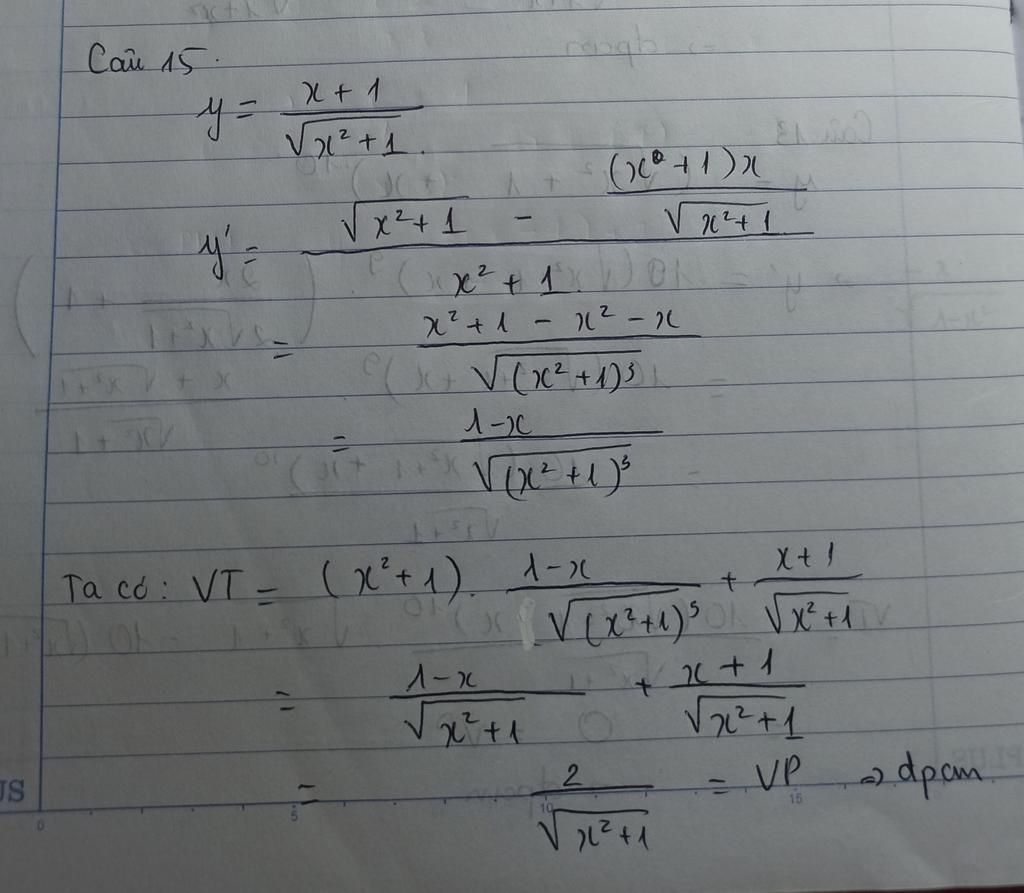 Câu 15.
y = \frac{x+1}{\sqrt{x^2+1}}.
y' = \frac{\sqrt{x^2+1} - \frac{(x+1)x}{\sqrt{x^2+1}}}{x^2+1}
= \frac{x^2+1-x^2-x}{\sqrt{(x^2+1)^3}}
= \frac{1-x}{\sqrt{(x^2+1)^3}}
Ta có: VT = (x^2+1) . \frac{1-x}{\sqrt{(x^2+1)^3}} + \frac{x+1}{\sqrt{x^2+1}}
= \frac{1-x}{\sqrt{x^2+1}} + \frac{x+1}{\sqrt{x^2+1}}
= \frac{2}{\sqrt{x^2+1}} = VP ⇒ dpcm
US
0 5 10 15